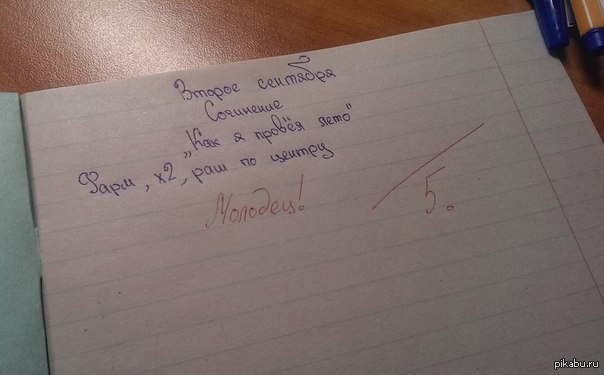 Второе сентября
Сочинение
„Как я провёл лето"
Фарм, х2, раш по центру
Молодец! 5.
pikabu.ru